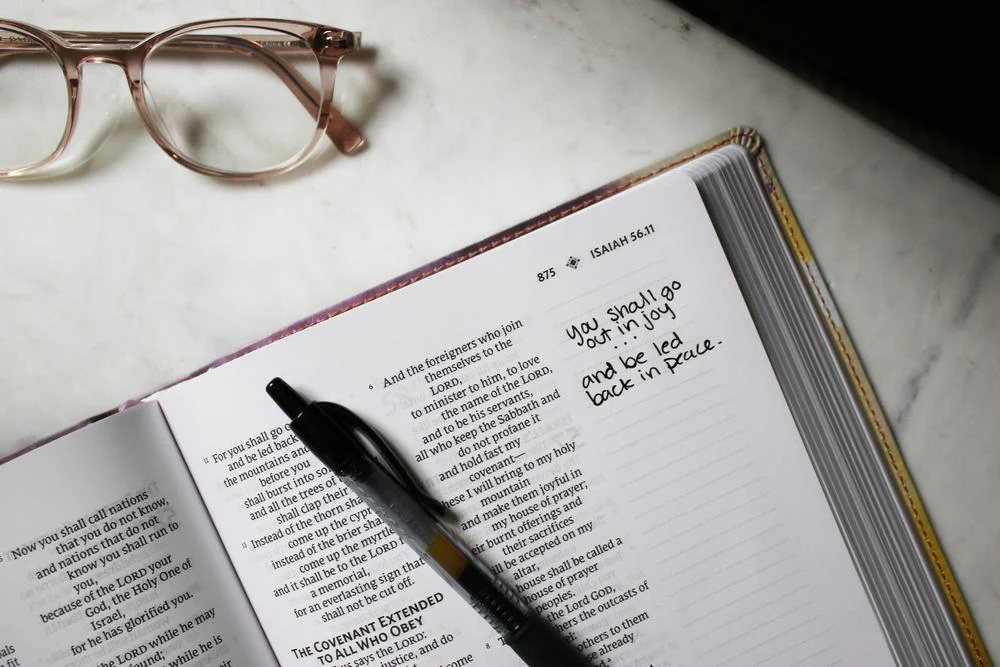 875 ISAIAH 56.11
you shall go
out in joy
...
and be led
back in peace.
Now you shall call nations
that you do not know,
and nations that do not
know you shall run to
you,
because of the LORD your
God, the Holy One of
Israel,
for he has glorified you.
LORD while he may
found;
while he is
12 For you shall go
and be led back
the mountains and
before you
shall burst into
and all the trees of
shall clap their
13 Instead of the thorn
come up the
instead of the brier
come up the
and it shall be to the LORD
a memorial,
for an everlasting sign that
shall not be cut off.
THE COVENANT EXTENDED
TO ALL WHO OBEY
says the LORD:
justice, and do
6 And the foreigners who join
themselves to the
LORD,
to minister to him, to love
the name of the LORD,
and to be his servants,
all who keep the Sabbath and
do not profane it
and hold fast my
covenant—
I will bring to my holy
mountain
and make them joyful in
my house of prayer;
burnt offerings and
their sacrifices
be accepted on my
altar;
house shall be called a
house of prayer
peoples.
8 the Lord GOD,
the outcasts of
others to them
already